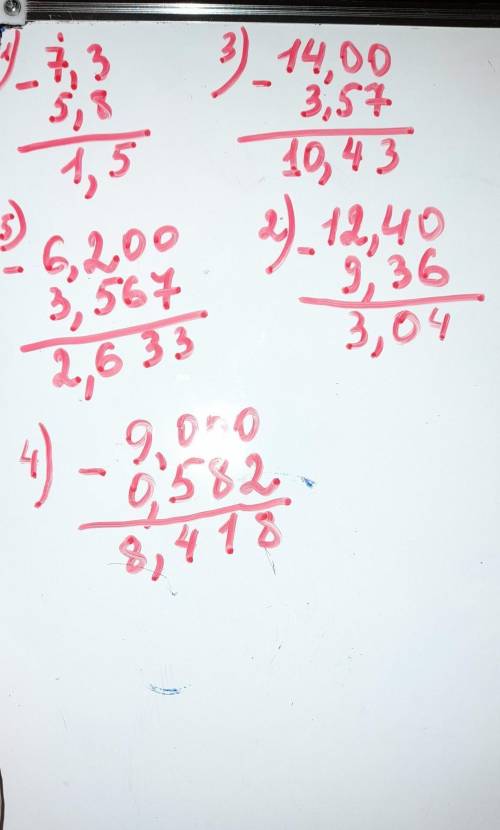 1) - 7,3
5,8
1,5
3) - 14,00
3,57
10,43
5) - 6,200
3,567
2,633
2) - 12,40
9,36
3,04
4) - 9,000
0,582
8,418